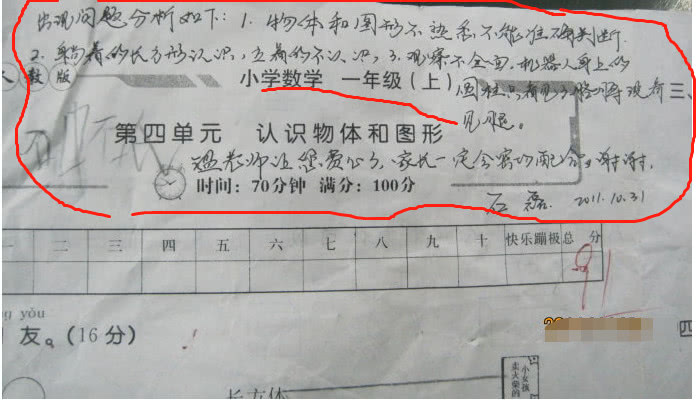 出现问题分析如下：1. 物体和图形不熟悉不能准确判断.
2. 躺着的长方形认识，立着的不认识，3. 观察不全面. 机器人耳上的
圆柱只看见了
没看
见腿。
人教版
小学数学 一年级（上）
三、
第四单元 认识物体和图形
温老师让您费心了，家长一定会密切配合。谢谢.
时间：70分钟 满分：100分
石磊 2011.10.31
一 二 三 四 五 六 七 八 九 十 快乐蹦极 总分
91
ng yǒu
友。(16分)
四
长方体
小女孩
走火柴的